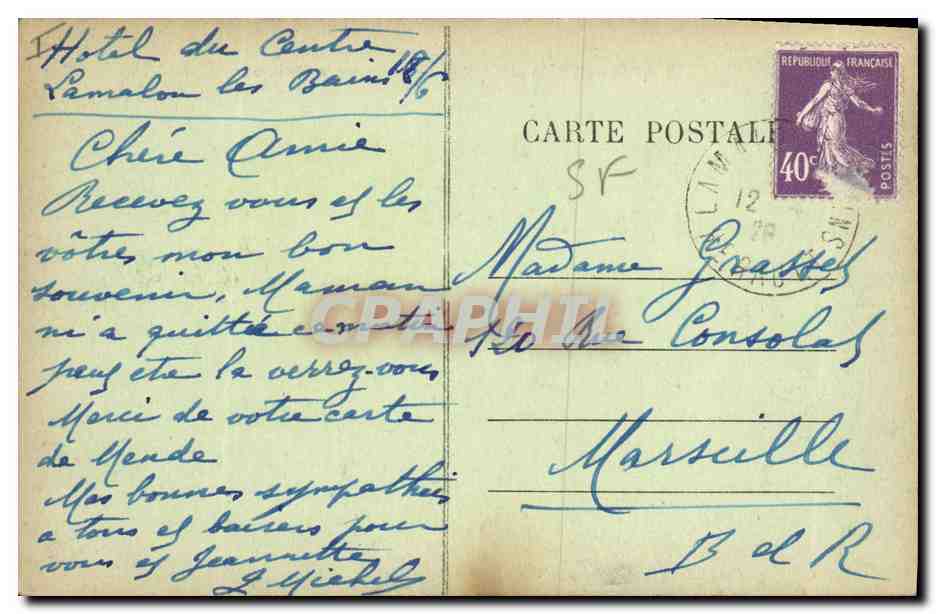 Hotel du Centre
Lamalou les Bains 18/6
Chére Amie
Recevez vous et les
vôtres mon bon
souvenir, Maman
m'a quittée ce matin
peut etre la verrez-vous
Merci de votre carte
de Mende
Mes bonnes sympathies
a tous et baisers pour
vous et Jeannette
J Michel
CARTE POSTALE
SF
REPUBLIQUE FRANÇAISE
40c
POSTES
LAM
12
HERAULT
Madame Grasset
150 Rue Consolat
Marseille
B d R
CPAPHIL